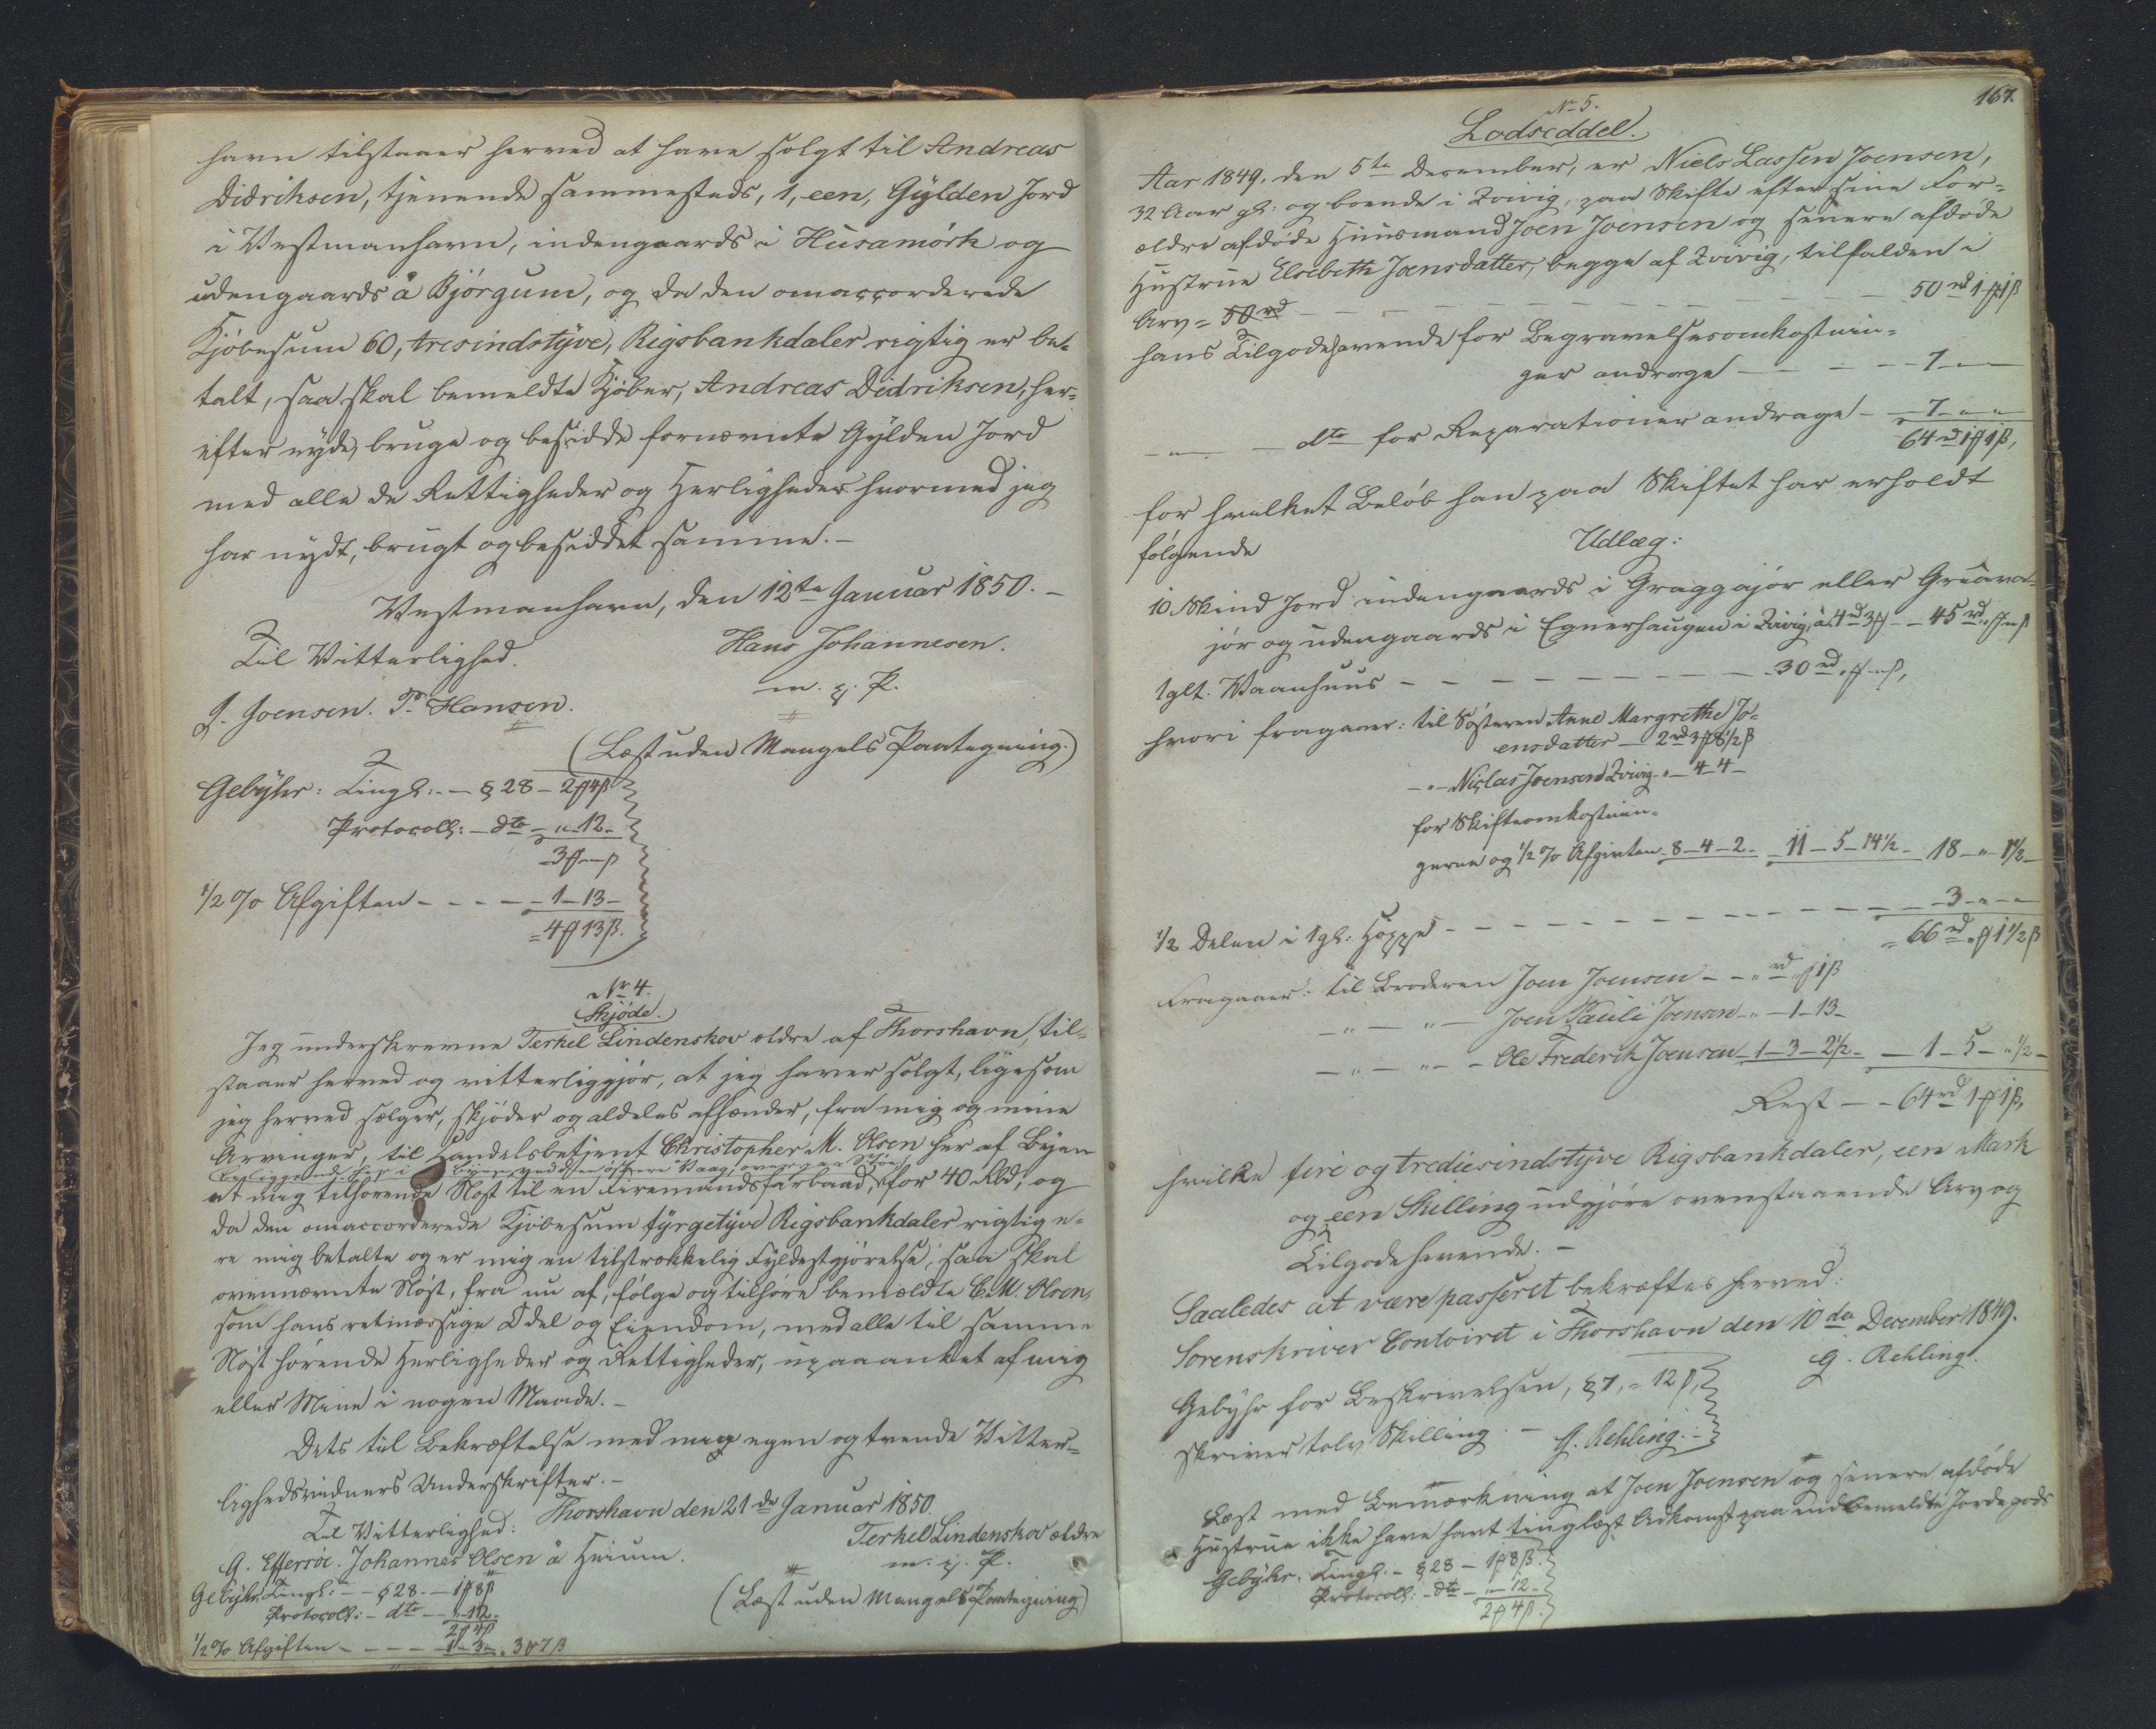 havn tilstaaer herved at have solgt til Andreas
Didriksen, tjenende sammesteds, 1, een, Gylden Jord
i Vestmanhavn, indengaards i Húsamórk og
udengaards å Bjórgum, og da den omaccorderede
Kjøbesum 60, tresindstyve, Rigsbankdaler rigtig er be-
talt, saa skal bemeldte Kjøber, Andreas Didriksen, her-
efter nyde, bruge og besidde fornævnte Gylden Jord
med alle de Rettigheder og Herligheder hvormed jeg
har nydt, brugt og besiddet samme.-
Vestmanhavn, den 12te Januar 1850.-
Til Vitterlighed.
Hans Johannesen.
J. Joensen. P. Hansen.
m. p. P.
(Læst uden Mangels Paategning.)
Gebyhr: Tingl:-- § 28 - 2 ℳ 4 ß
Protocoll: - dto - " - 12 -
3 ℳ - " ß
1/2 % Afgiften - - - - 1 - 13 -
= 4 ℳ 13 ß.
No 4.
Skjøde.
Jeg underskrevne Terkel Lindenskov ældre af Thorshavn, til-
staaer herved og vitterliggjør, at jeg haver solgt, ligesom
jeg herved sælger, skjøder og aldeles afhænder, fra mig og mine
Arvinger, til Handelsbetjent Christopher M. Olsen her af Byen
beliggende her i Byen ved den østre Vaag, ovenpaa
et mig tilhørende Nøst til en Firemandsfarbaad, for 40 Rbd, og
da den omaccorderede Kjøbesum fyrgetyve Rigsbankdaler rigtig e-
re mig betalte og er mig en tilstrækkelig Fyldestgjørelse, saa skal
ovennævnte Nøst, fra nu af, følge og tilhøre bemældte C. M. Olsen,
som hans retmæssige Odel og Eiendom, med alle til samme
Nøst hørende Herligheder og Rettigheder, upaaanket af mig
eller Mine i nogen Maade.-
Dets til Bekræftelse med min egen og tvende Vitter-
lighedsvidners Underskrifter.-
Thorshavn den 21de Januar 1850.
Til Vitterlighed:
Terkel Lindenskov ældre
G. Effersöe. Johannes Olsen å Heium.
m. p. P.
Gebyhr: Tingl: - - § 28. - 1 ℳ 8 ß
(Læst uden Mangels Paategning)
Protocoll: - dto - - " - 12 -
2 ℳ 4 ß
1/2 % Afgiften - - - - - 1 - 3 - = 3 ℳ 7 ß
167.
No 5.
Lodseddel.
Aar 1849, den 5te December, er Niels Lassen Joensen,
32 Aar gl: og boende i Qvivig, paa Skifte efter sine For-
ældre afdøde Huusmand Joen Joensen og senere afdøde
Hustrue Elsebeth Joensdatter, begge af Qvivig, tilfalden i
Arv = 50 rd - - - - - - - - - 50 rd 1 ℳ 1 ß
hans Tilgodehavende for Begravelsesomkostnin-
ger andraget - - - - 7 - " - "
- " - - dto for Reparationer andraget - 7 - " - "
64 rd 1 ℳ 1 ß,
for hvilket Beløb han paa Skiftet har erholdt
følgende Udlæg:
10 Skind Jord indengaards i Graggajór eller Gruava-
jór og udengaards i Egnerhaugen i Qvivig, à 4 rd 3 ℳ - - 45 rd " ℳ " ß
1 glt. Vaanhuus - - - - - - - - - 30 rd " ℳ " ß,
hvori fragaaer: til Søsteren Anne Margrethe Jo-
ensdatter - 2 rd 3 ℳ 8 1/2 ß
- " - Niclas Joensen Qvivig - " - 4 - 4 -
for Skifteomkostnin-
gerne og 1/2 % Afgivten - 8 - 4 - 2 - 11 - 5 - 14 1/2 - 18 - " - 1 1/2 -
1/2 Delen i 1 gl: Høppe - - - - - - - - - 3 - " - "
= 66 rd " ℳ 1 1/2 ß
Fragaaer: til Broderen Joen Joensen - - " rd " ℳ 1 ß
- " - " - Joen Pauli Joensen - " - 1 - 13 -
- " - " - - Ole Frederik Joensen - 1 - 3 - 2 1/2 - - 1 - 5 - " 1/2 -
Rest - - 64 rd 1 ℳ 1 ß,
hvilke fire og trediesindstyve Rigsbankdaler, een Mark
og een Skilling udgjøre ovenstaaende Arv og
Tilgodehavende.-
Saaledes at være passeret bekræftes herved:
Sorenskriver Contoiret i Thorshavn den 10de December 1849.
G. Rehling.
Gebyhr for Beskrivelsen, § 7, = 12 ß,
skriver tolv Skilling.- G. Rehling.-
Læst med Bemærkning at Joen Joensen og senere afdøde
Hustrue ikke have havt tinglæst Adkomst paa indbemeldte Jordegods
Gebyhr: Tingl. - § 28 - 1 ℳ 8 ß.
Protocoll: - dto - " - 12 -
2 ℳ 4 ß.